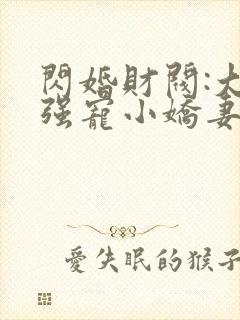 閃婚財閥:大
强寵小嬌妻
愛失眠的猴子